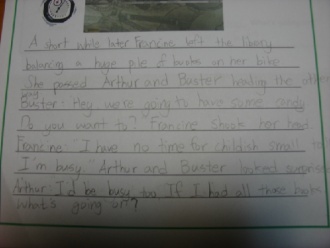 A short while later Francine left the libery
balancing a huge pile of books on her bike
She passed Arthur and Buster heading the other
way
Buster: Hey we're going to have some candy
Do you want to? Francine shook her head
Francine: "I have no time for childish small to
I'm busy." Arthur and Buster looked surprise
Arthur: I'd be busy too. If I had all those books
what's going on?